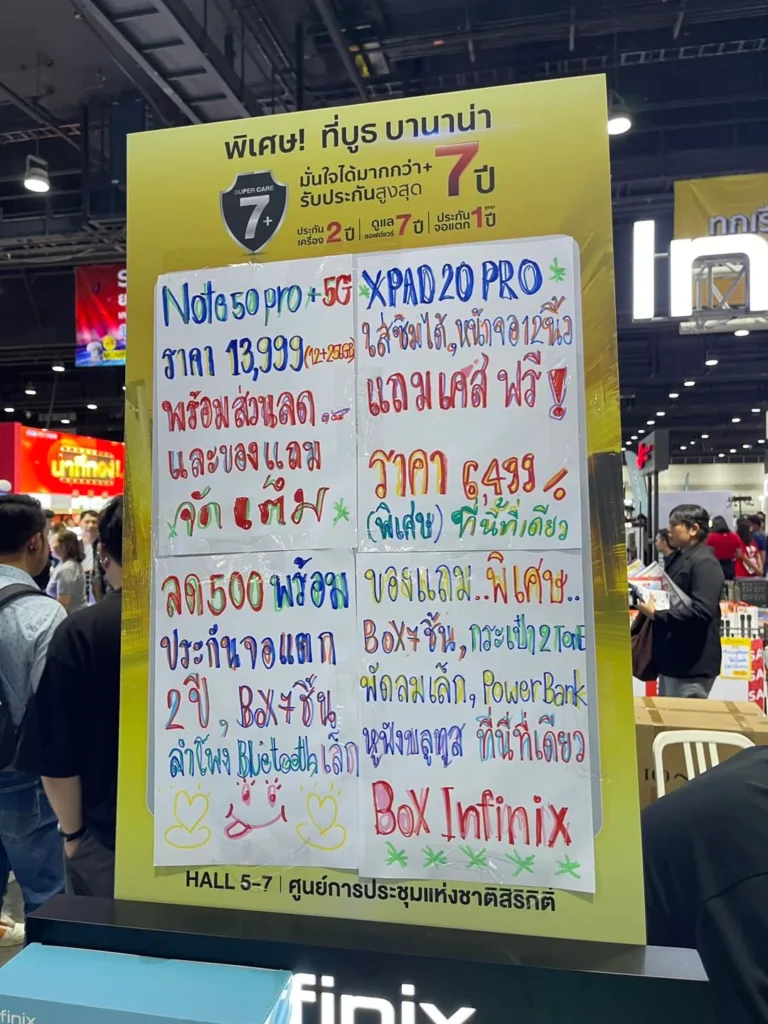 พิเศษ! ที่บูธ บานาน่า
SUPER CARE
7+
มั่นใจได้มากกว่า+
รับประกันสูงสุด 7 ปี
ประกันเครื่อง 2 ปี | ดูแลซอฟต์แวร์ 7 ปี | ประกันจอแตก 1 ปี
Note 50 pro + 5G
ราคา 13,999 (12+256GB)
พร้อมส่วนลด
และของแถม
จัดเต็ม
XPAD 20 PRO
ใส่ซิมได้, หน้าจอ 12 นิ้ว
แถมเคส ฟรี!
ราคา 6,499
(พิเศษ) ที่นี่ที่เดียว
ลด 500 พร้อม
ประกันจอแตก
2 ปี, BOX 7 ชิ้น
ลำโพง Bluetooth เล็ก
ของแถม..พิเศษ..
BOX 7 ชิ้น, กระเป๋า 2 Tone
พัดลมเล็ก, Power Bank
หูฟังบลูทูส ที่นี่ที่เดียว
BOX Infinix
HALL 5-7 | ศูนย์การประชุมแห่งชาติสิริกิติ์
finix
finix
In